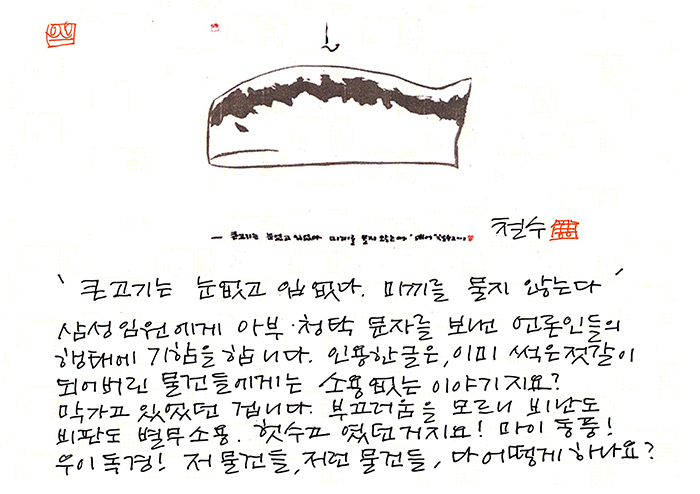 — 큰고기는 눈없고 입없다 미끼를 물지 않는다
철수
' 큰고기는 눈없고 입없다. 미끼를 물지 않는다 '
삼성임원에게 아부·청탁 문자를 보낸 언론인들의
행태에 기함을 합니다. 인용한글은, 이미 썩은젓갈이
되어버린 물건들에게는 소용없는 이야기지요?
막가고 있었던 겁니다. 부끄러움을 모르니 비난도
비판도 별무소용. 헛수고 였던거지요! 마이동풍!
우이독경! 저 물건들, 저런 물건들, 다 어떻게 하나요?